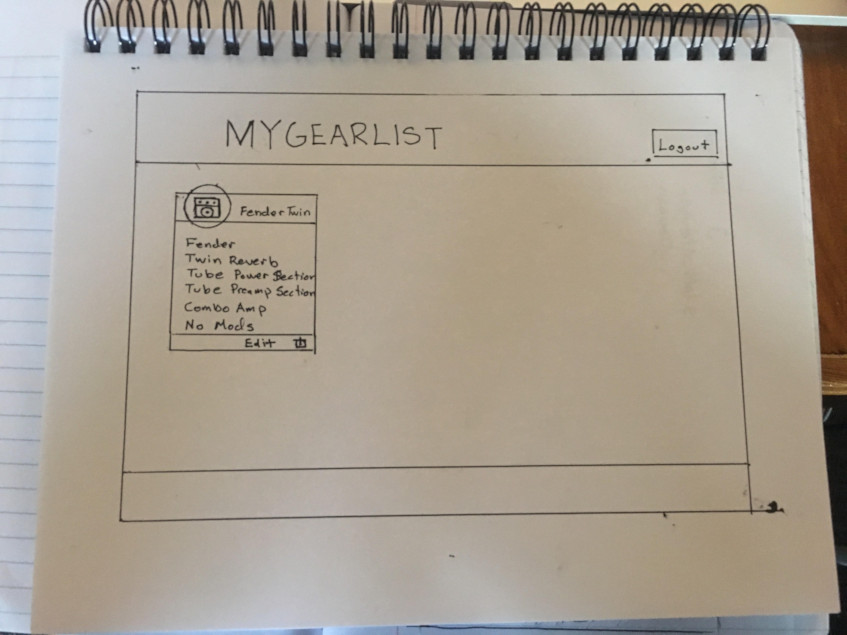 MYGEARLIST
Logout
Fender Twin
Fender
Twin Reverb
Tube Power Section
Tube Preamp Section
Combo Amp
No Mods
Edit